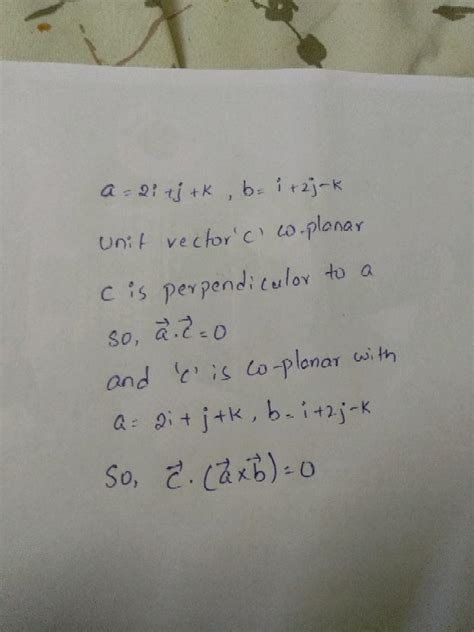 a = 2i + j + k , b = i + 2j - k
unit vector 'c' co-planar
c is perpendiculor to a
so, a⃗ . c⃗ = 0
and 'c' is co-planar with
a = 2i + j + k , b = i + 2j - k
So, c⃗ . (a⃗ x b⃗) = 0